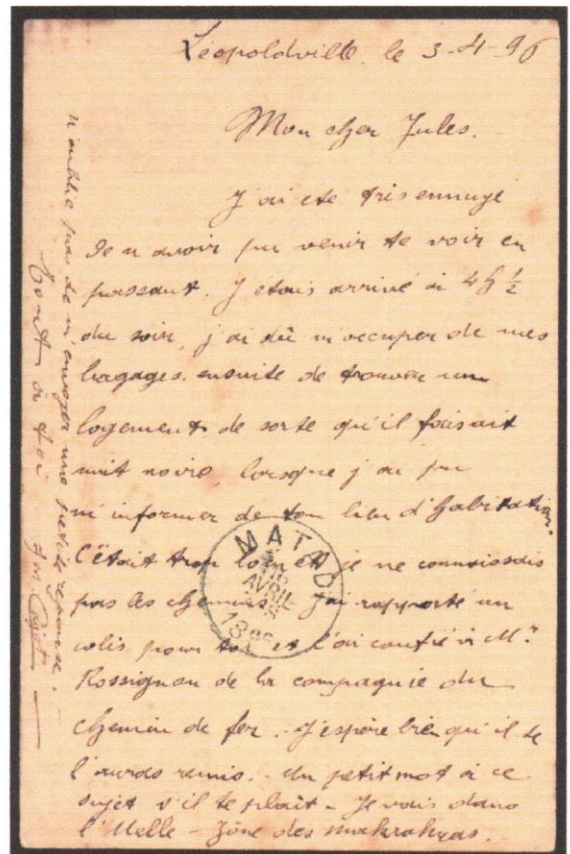 Léopoldville. le 3-4-96
Mon cher Jules.
J'ai été très ennuyé
de n'avoir pu venir te voir en
passant. J'étais arrivé à 4h ½
du soir, j'ai dû m'occuper de mes
bagages. ensuite de trouver un
logement de sorte qu'il faisait
nuit noire lorsque j'ai pu
m'informer de ton lieu d'habitation.
C'était trop loin et je ne connaissais
pas les chemins. J'ai rapporté un
colis pour toi et l'ai confié à Mr
Rossignon de la compagnie du
chemin de fer. J'espère bien qu'il te
l'auras remis. Un petit mot à ce
sujet s'il te plaît - Je vais dans
l'Uelle - Zône des makrakras.
n'oublie pas de m'envoyer une petite réponse. -
Tout à toi
MATADI
AVRIL